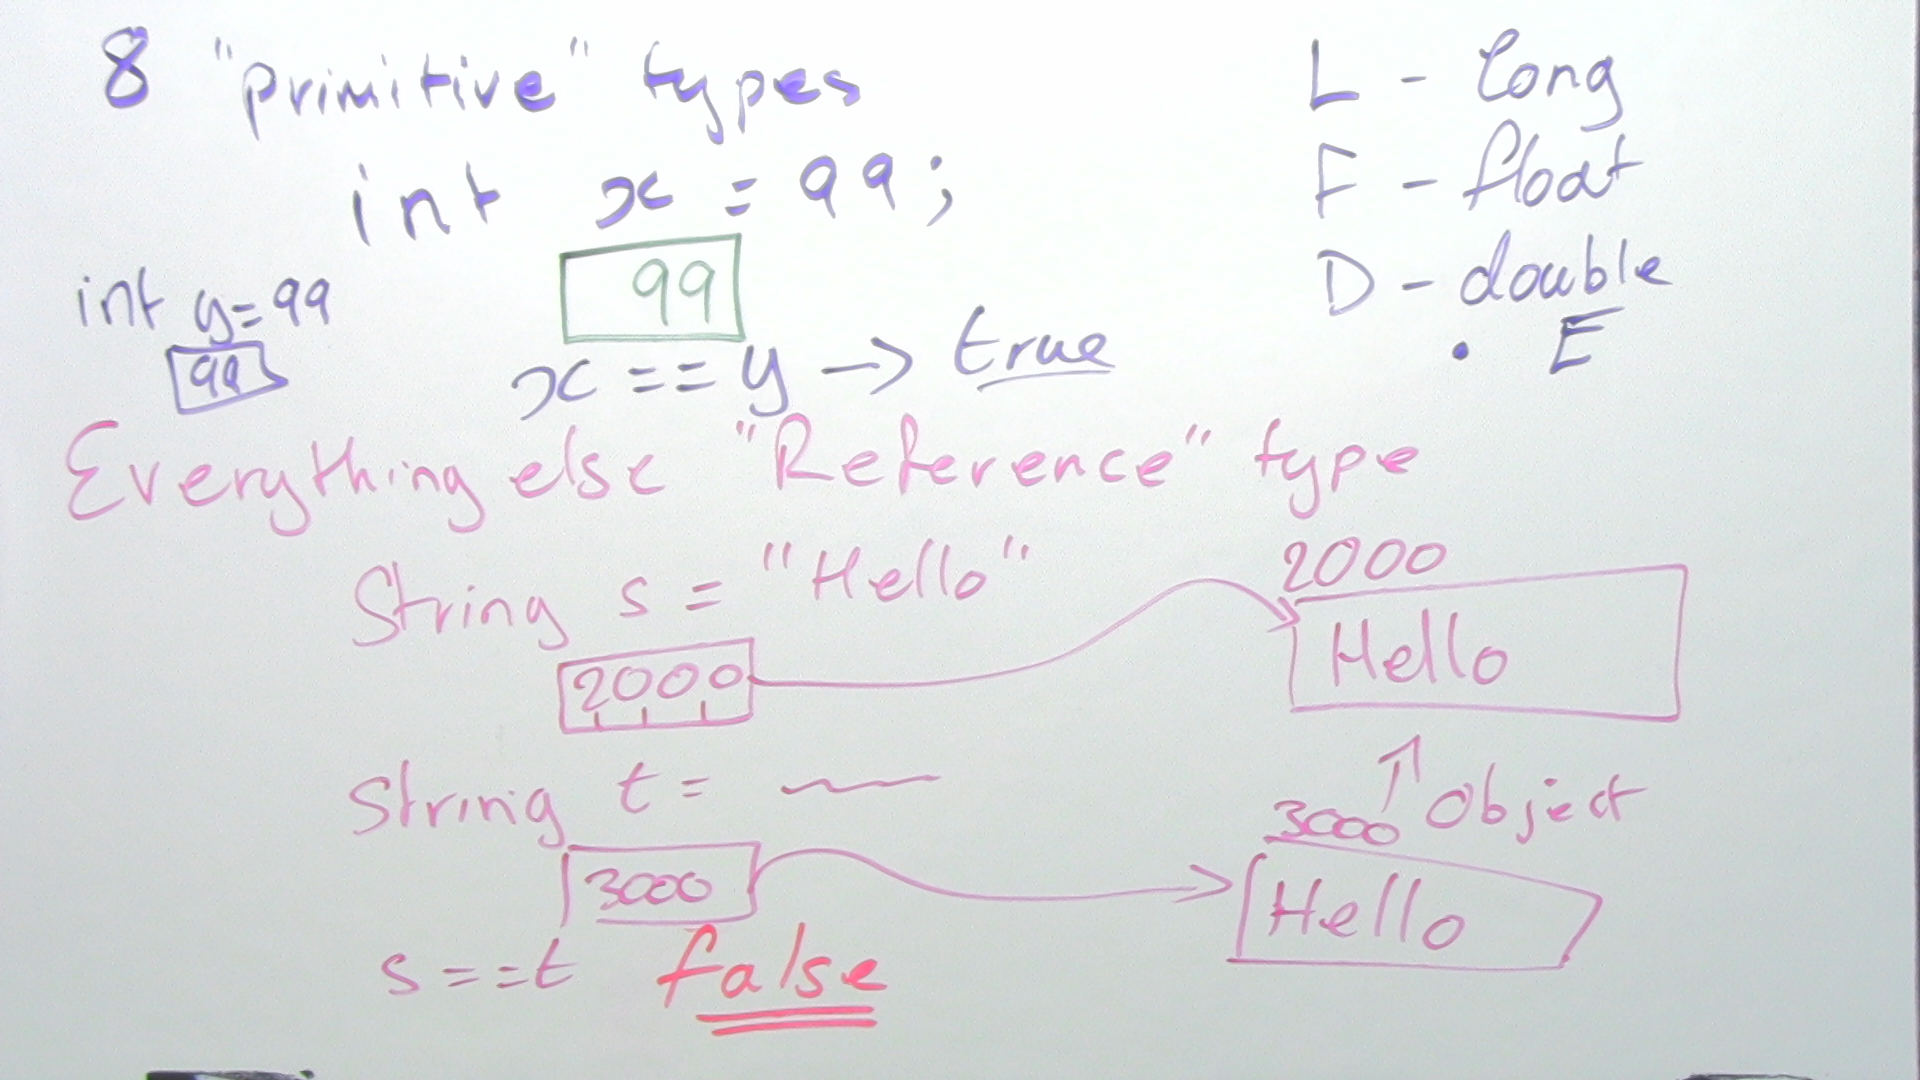 8 "primitive" types
int x = 99;
int y=99
99
99
x == y -> true
L - long
F - float
D - double
. E
Everything else "Reference" type
String s = "Hello"
2000
2000
Hello
Object
String t =
3000
3000
Hello
s==t false